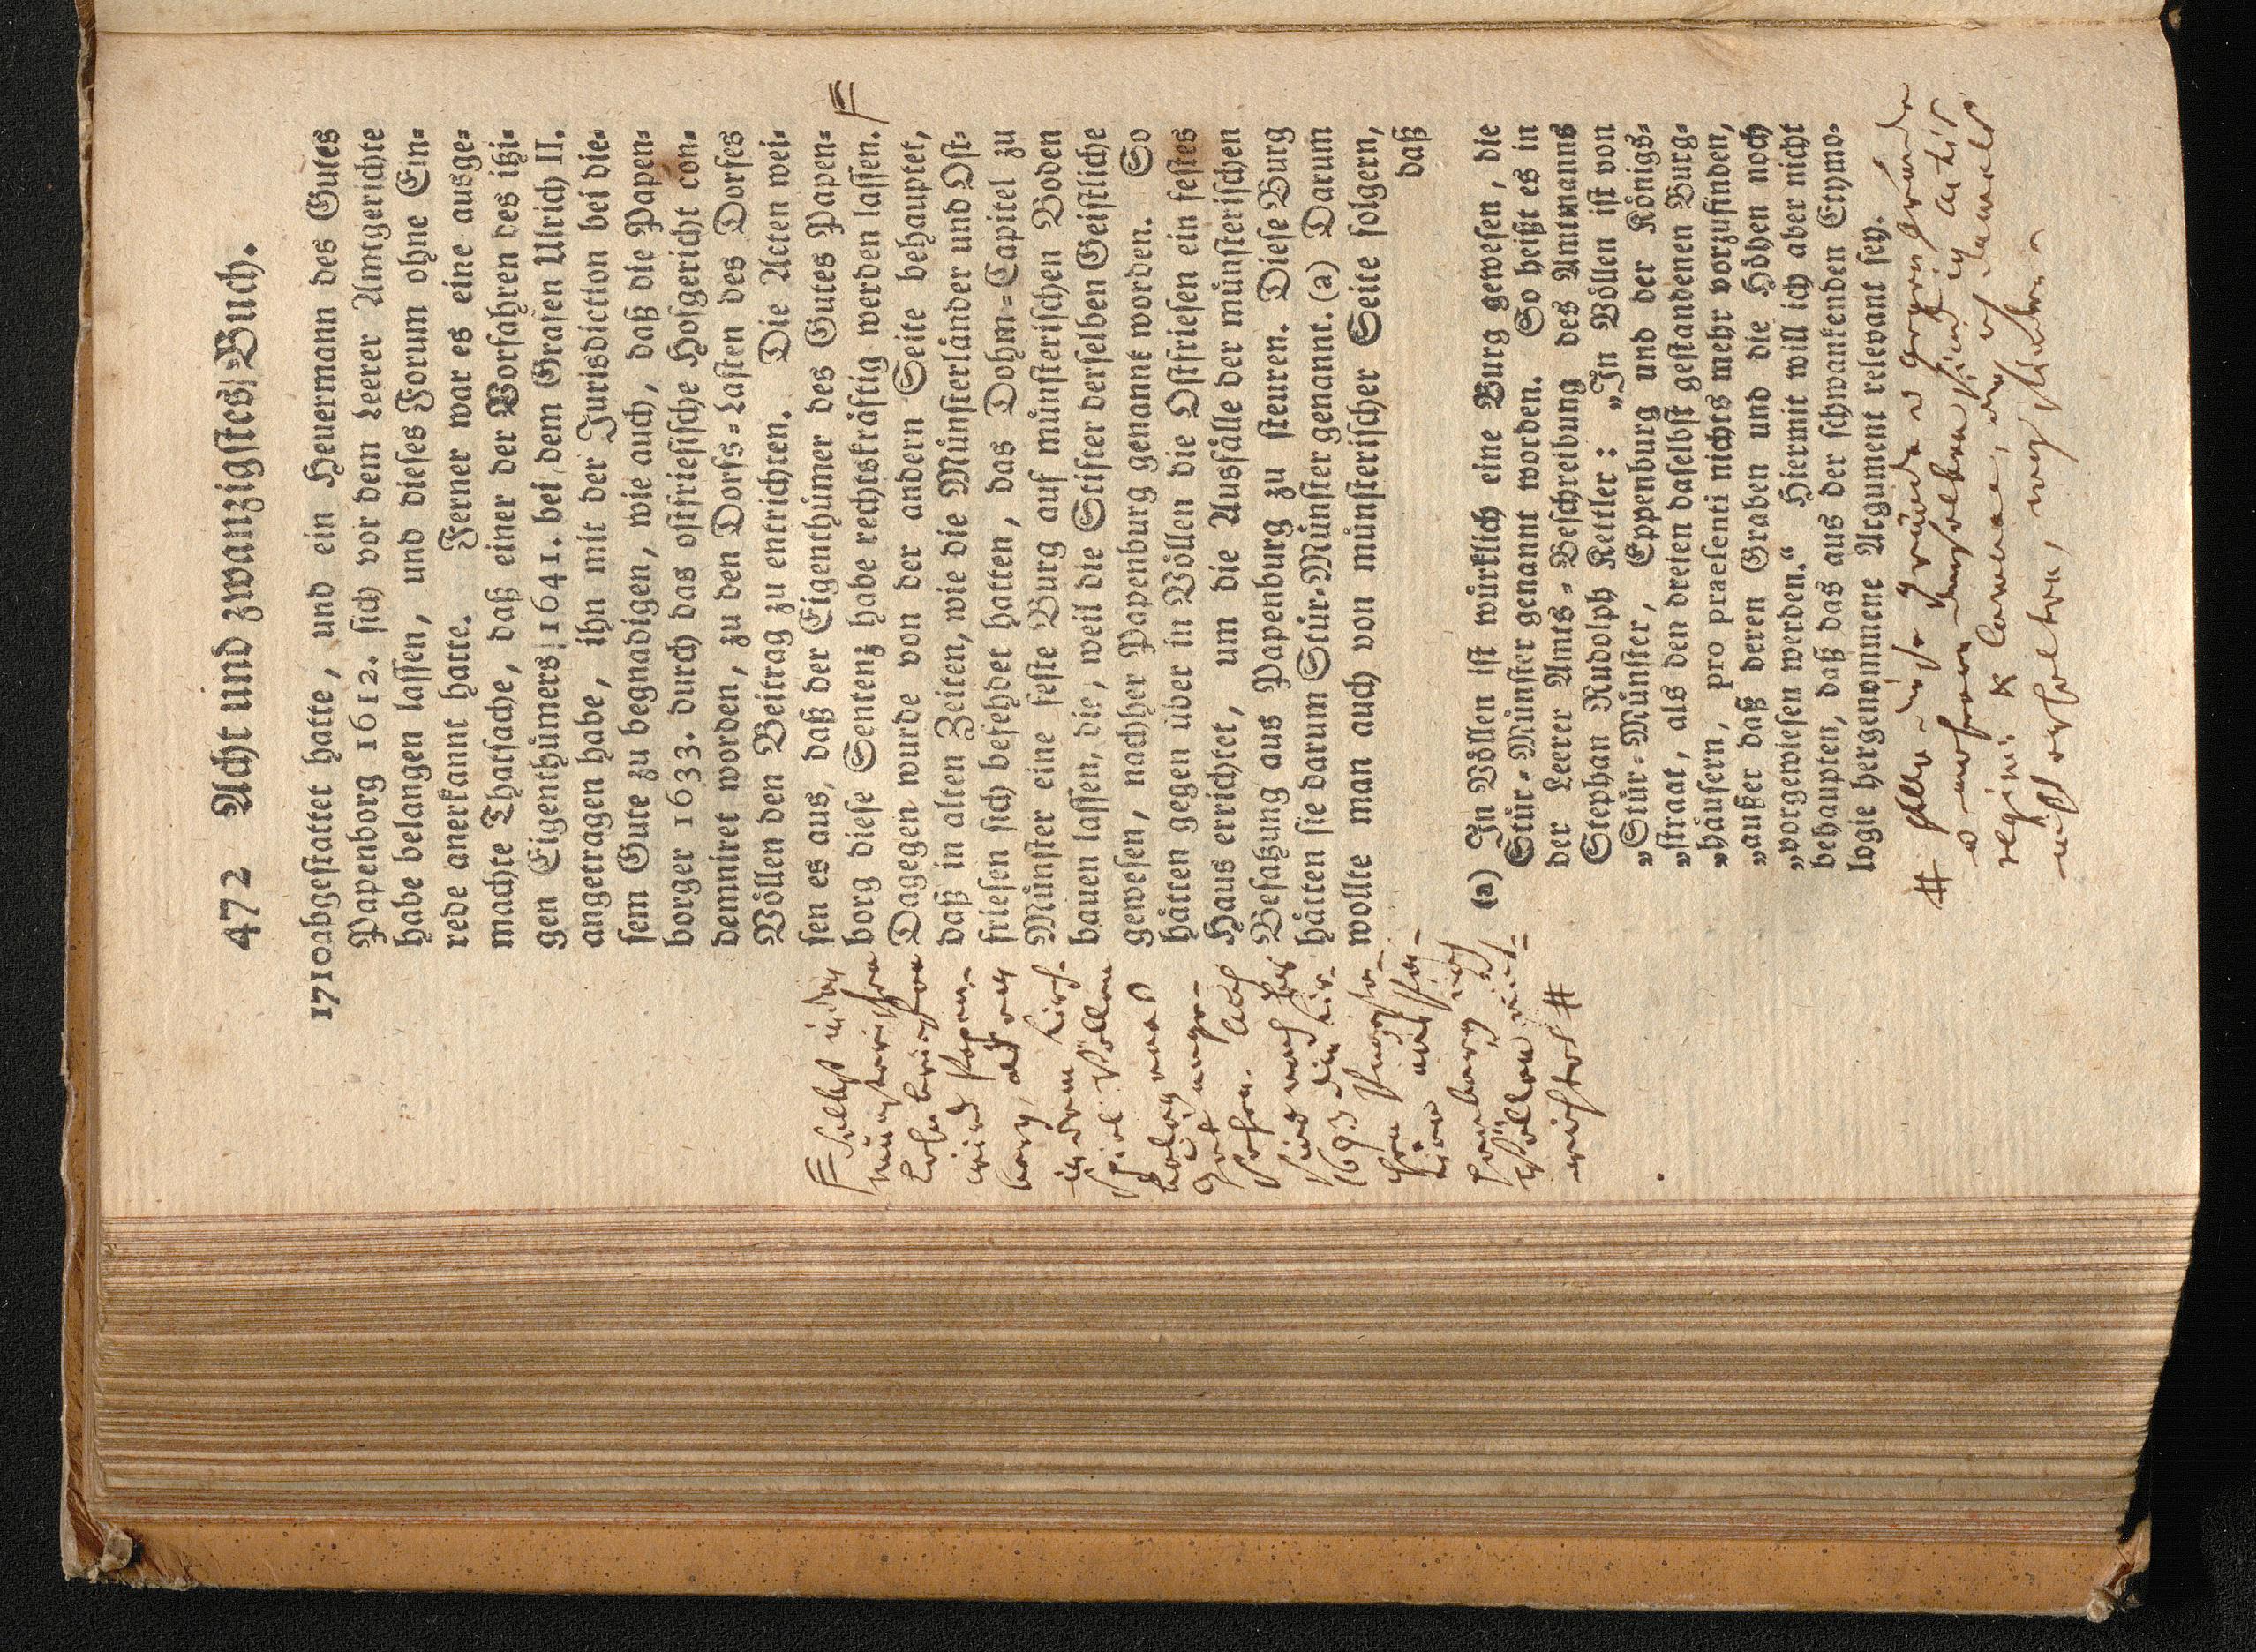 472 Acht und zwanzigstes Buch.
1710 abgestattet hatte, und ein Heuermann des Gutes
Papenborg 1612. sich vor dem Leerer Amtgerichte
habe belangen lassen, und dieses Forum ohne Ein-
rede anerkannt hatte. Ferner war es eine ausge-
machte Thatsache, daß einer der Vorfahren des itzi-
gen Eigenthümers 1641. bei dem Grafen Ulrich II.
angetragen habe, ihn mit der Jurisdiction bei die-
sem Gute zu begnadigen, wie auch, daß die Papen-
borger 1633. durch das ostfriesische Hofgericht con-
demniret worden, zu den Dorfs-Lasten des Dorfes
Völlen den Beitrag zu entrichten. Die Acten wei-
sen es aus, daß der Eigenthümer des Gutes Papen-
borg diese Sentenz habe rechtskräftig werden lassen.
Dagegen wurde von der andern Seite behauptet,
daß in alten Zeiten, wie die Münsterländer und Ost-
friesen sich befehdet hatten, das Dohm-Capitel zu
Münster eine feste Burg auf münsterischen Boden
bauen lassen, die, weil die Stifter derselben Geistliche
gewesen, nachher Papenburg genannt worden. So
hätten gegen über in Völlen die Ostfriesen ein festes
Haus errichtet, um die Ausfälle der münsterischen
Besatzung aus Papenburg zu steuren. Diese Burg
hätten sie darum Stür-Münster genannt. (a) Darum
wollte man auch von münsterischer Seite folgern,
daß
(a) In Völlen ist würklich eine Burg gewesen, die
Stür-Münster genannt worden. So heißt es in
der Leerer Amts-Beschreibung des Amtmanns
Stephan Rudolph Kettler: „In Völlen ist von
„Stür-Münster, Eppenburg und der Königs-
„straat, als den dreien daselbst gestandenen Burg-
„häusern, pro praesenti nichts mehr vorzufinden,
„außer daß deren Graben und die Höhen noch
„vorgewiesen werden.“ Hiermit will ich aber nicht
behaupten, daß das aus der schwankenden Etymo-
logie hergenommene Argument relevant sey.
selbst in den
münsterischen
Lehnbriefen
wird Papen-
burg, als
in dem Kirch-
spiel Völlen
1693
# alle diese Gründe u gegengründe